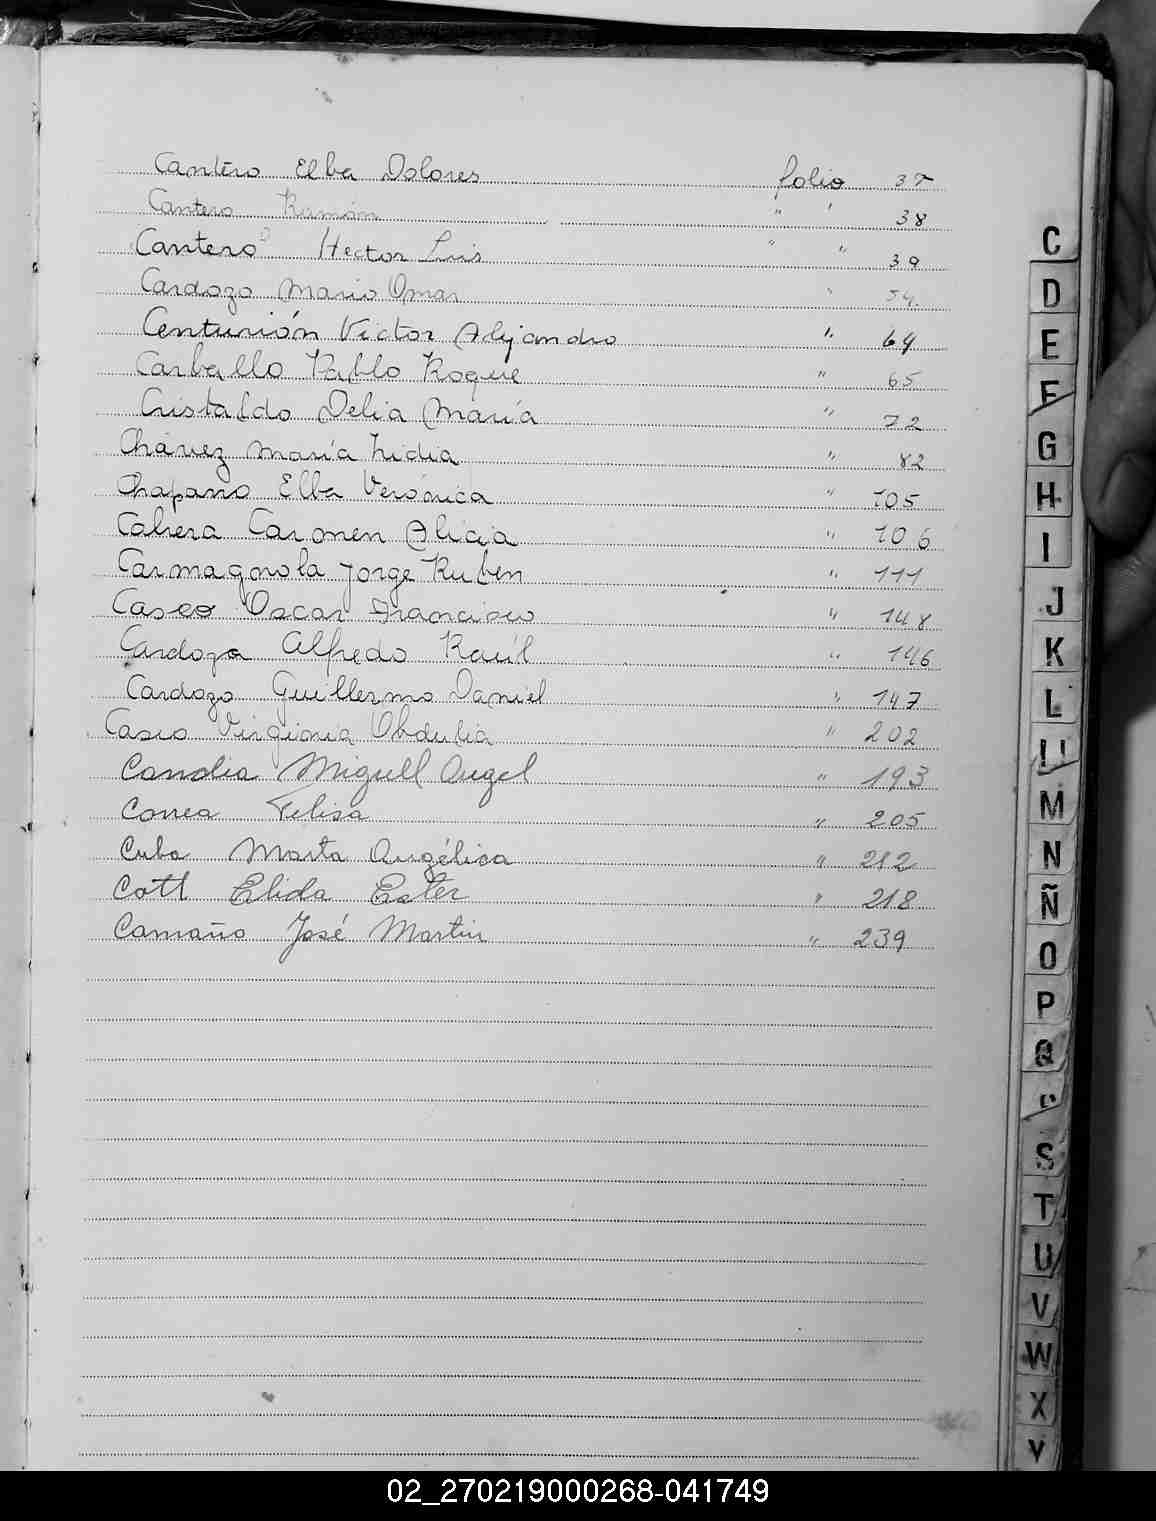 Cantero Elba Dolores folio 37
Cantero Ramón " " 38
Cantero Hector Luis " " 39
Cardozo Mario Omar " 54.
Centurión Victor Alejandro " 64
Carballo Pablo Roque " 65
Cristaldo Delia María " 72
Chávez María Lidia " 82
Chaparro Elba Verónica " 105
Cabrera Carmen Alicia " 106
Carmagnola Jorge Ruben " 111
Casco Oscar Francisco " 148
Cardozo Alfredo Raúl " 146
Cardozo Guillermo Daniel " 147
Casco Virginia Obdulia " 202
Candia Miguel Angel " 193
Correa Felisa " 205
Cuba Marta Angélica " 212
Cott Elida Ester " 218
Camaño José Martin " 239
C
D
E
F
G
H
I
J
K
L
M
N
Ñ
O
P
Q
S
T
U
V
W
X
Y
02_270219000268-041749